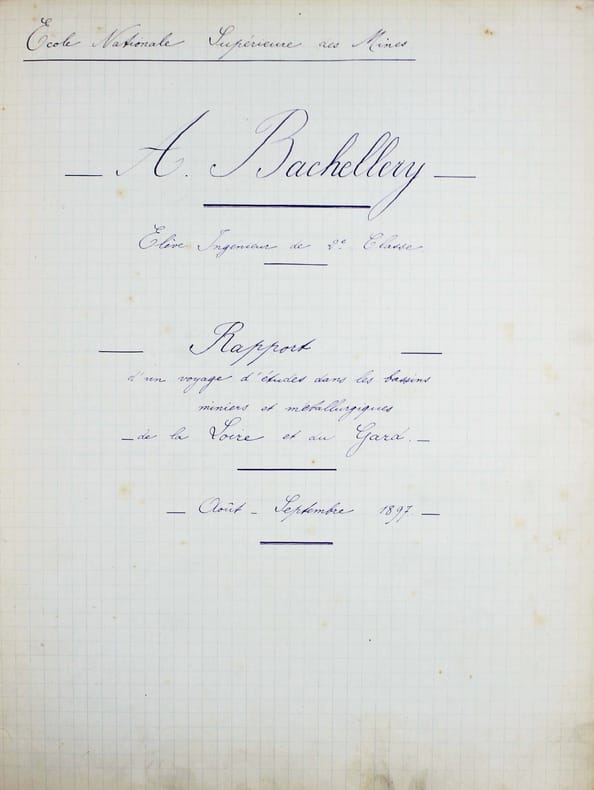 Ecole Nationale Supérieure des Mines
— A. Bachellery —
Elève Ingenieur de 2e Classe
— Rapport —
d'un voyage d'études dans les bassins
miniers et métallurgiques
— de la Loire et du Gard. —
— Août - Septembre 1897. —